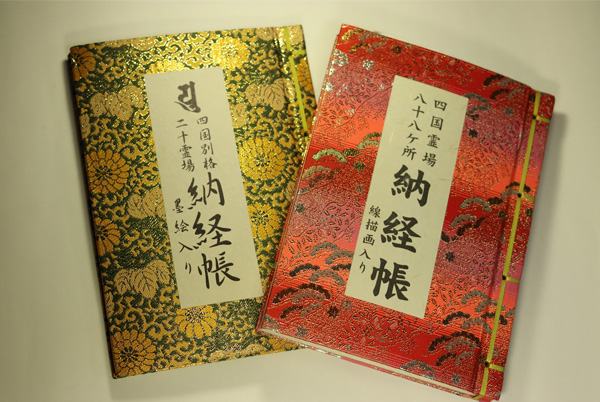 四国別格
二十霊場
納経帳
墨絵入り
四国霊場
八十八ヶ所
納経帳
線描画入り